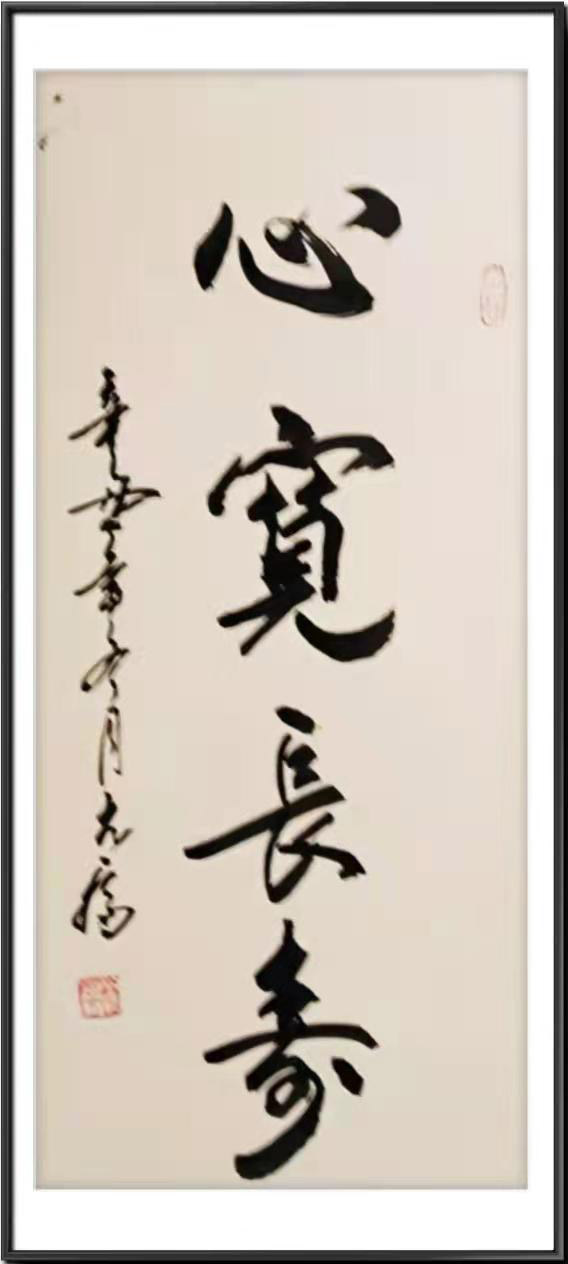 心寬長壽
辛丑年冬月